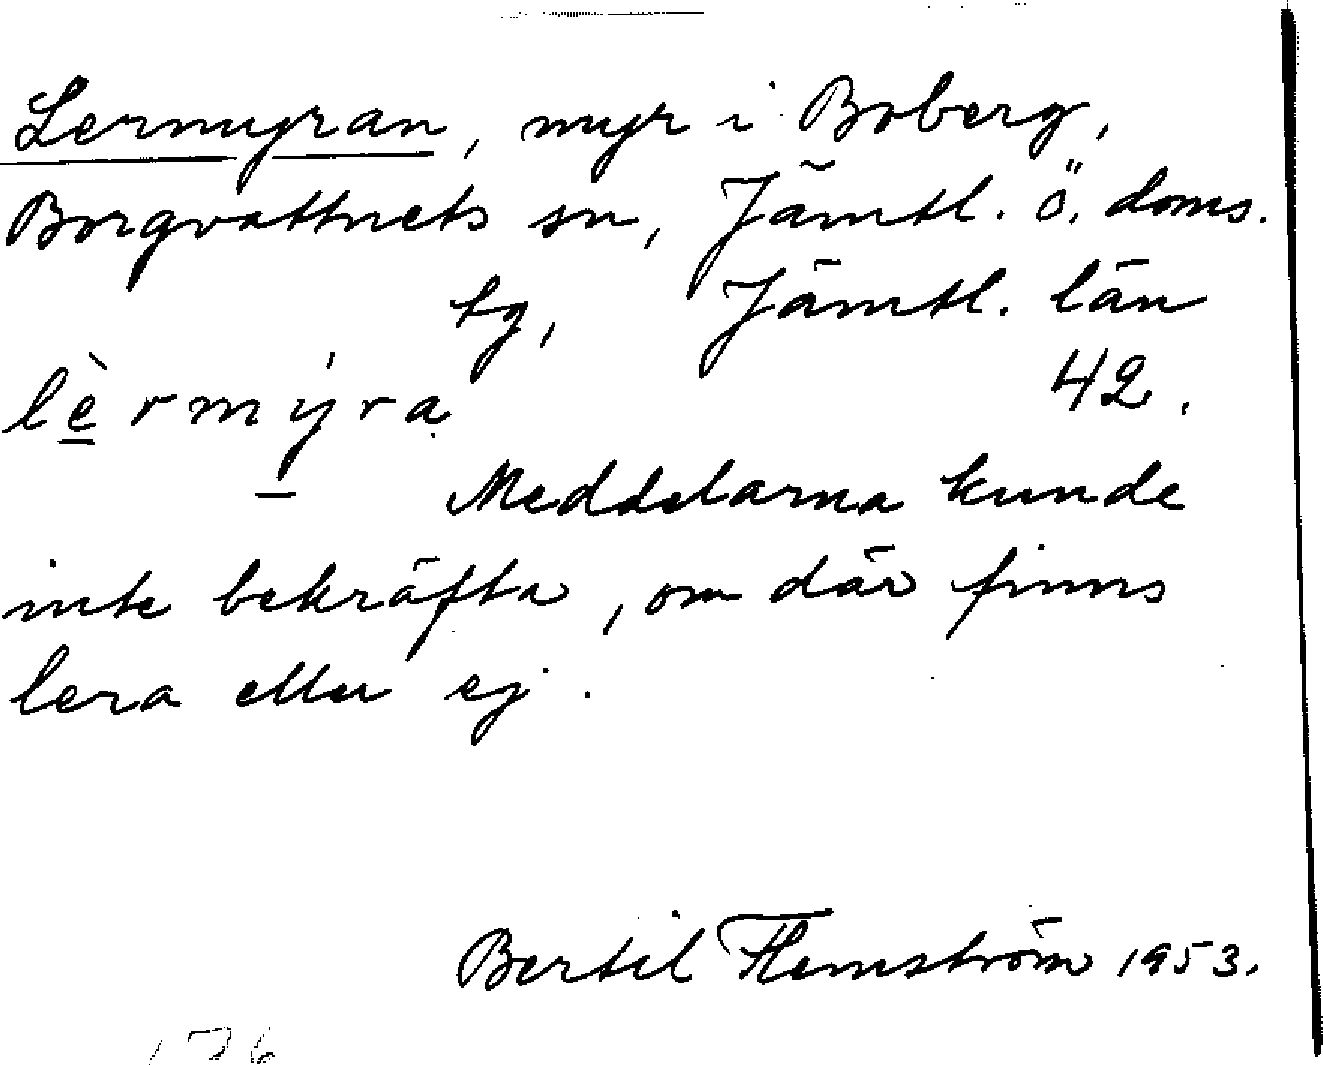 Lermyran, myr i Boberg,
Borgvattnets sn, Jämtl. ö. doms.
tg, Jämtl. län
lèrmýra 42.
Meddelarna kunde
inte bekräfta, om där finns
lera eller ej.
Bertil Flemström 1953.
176